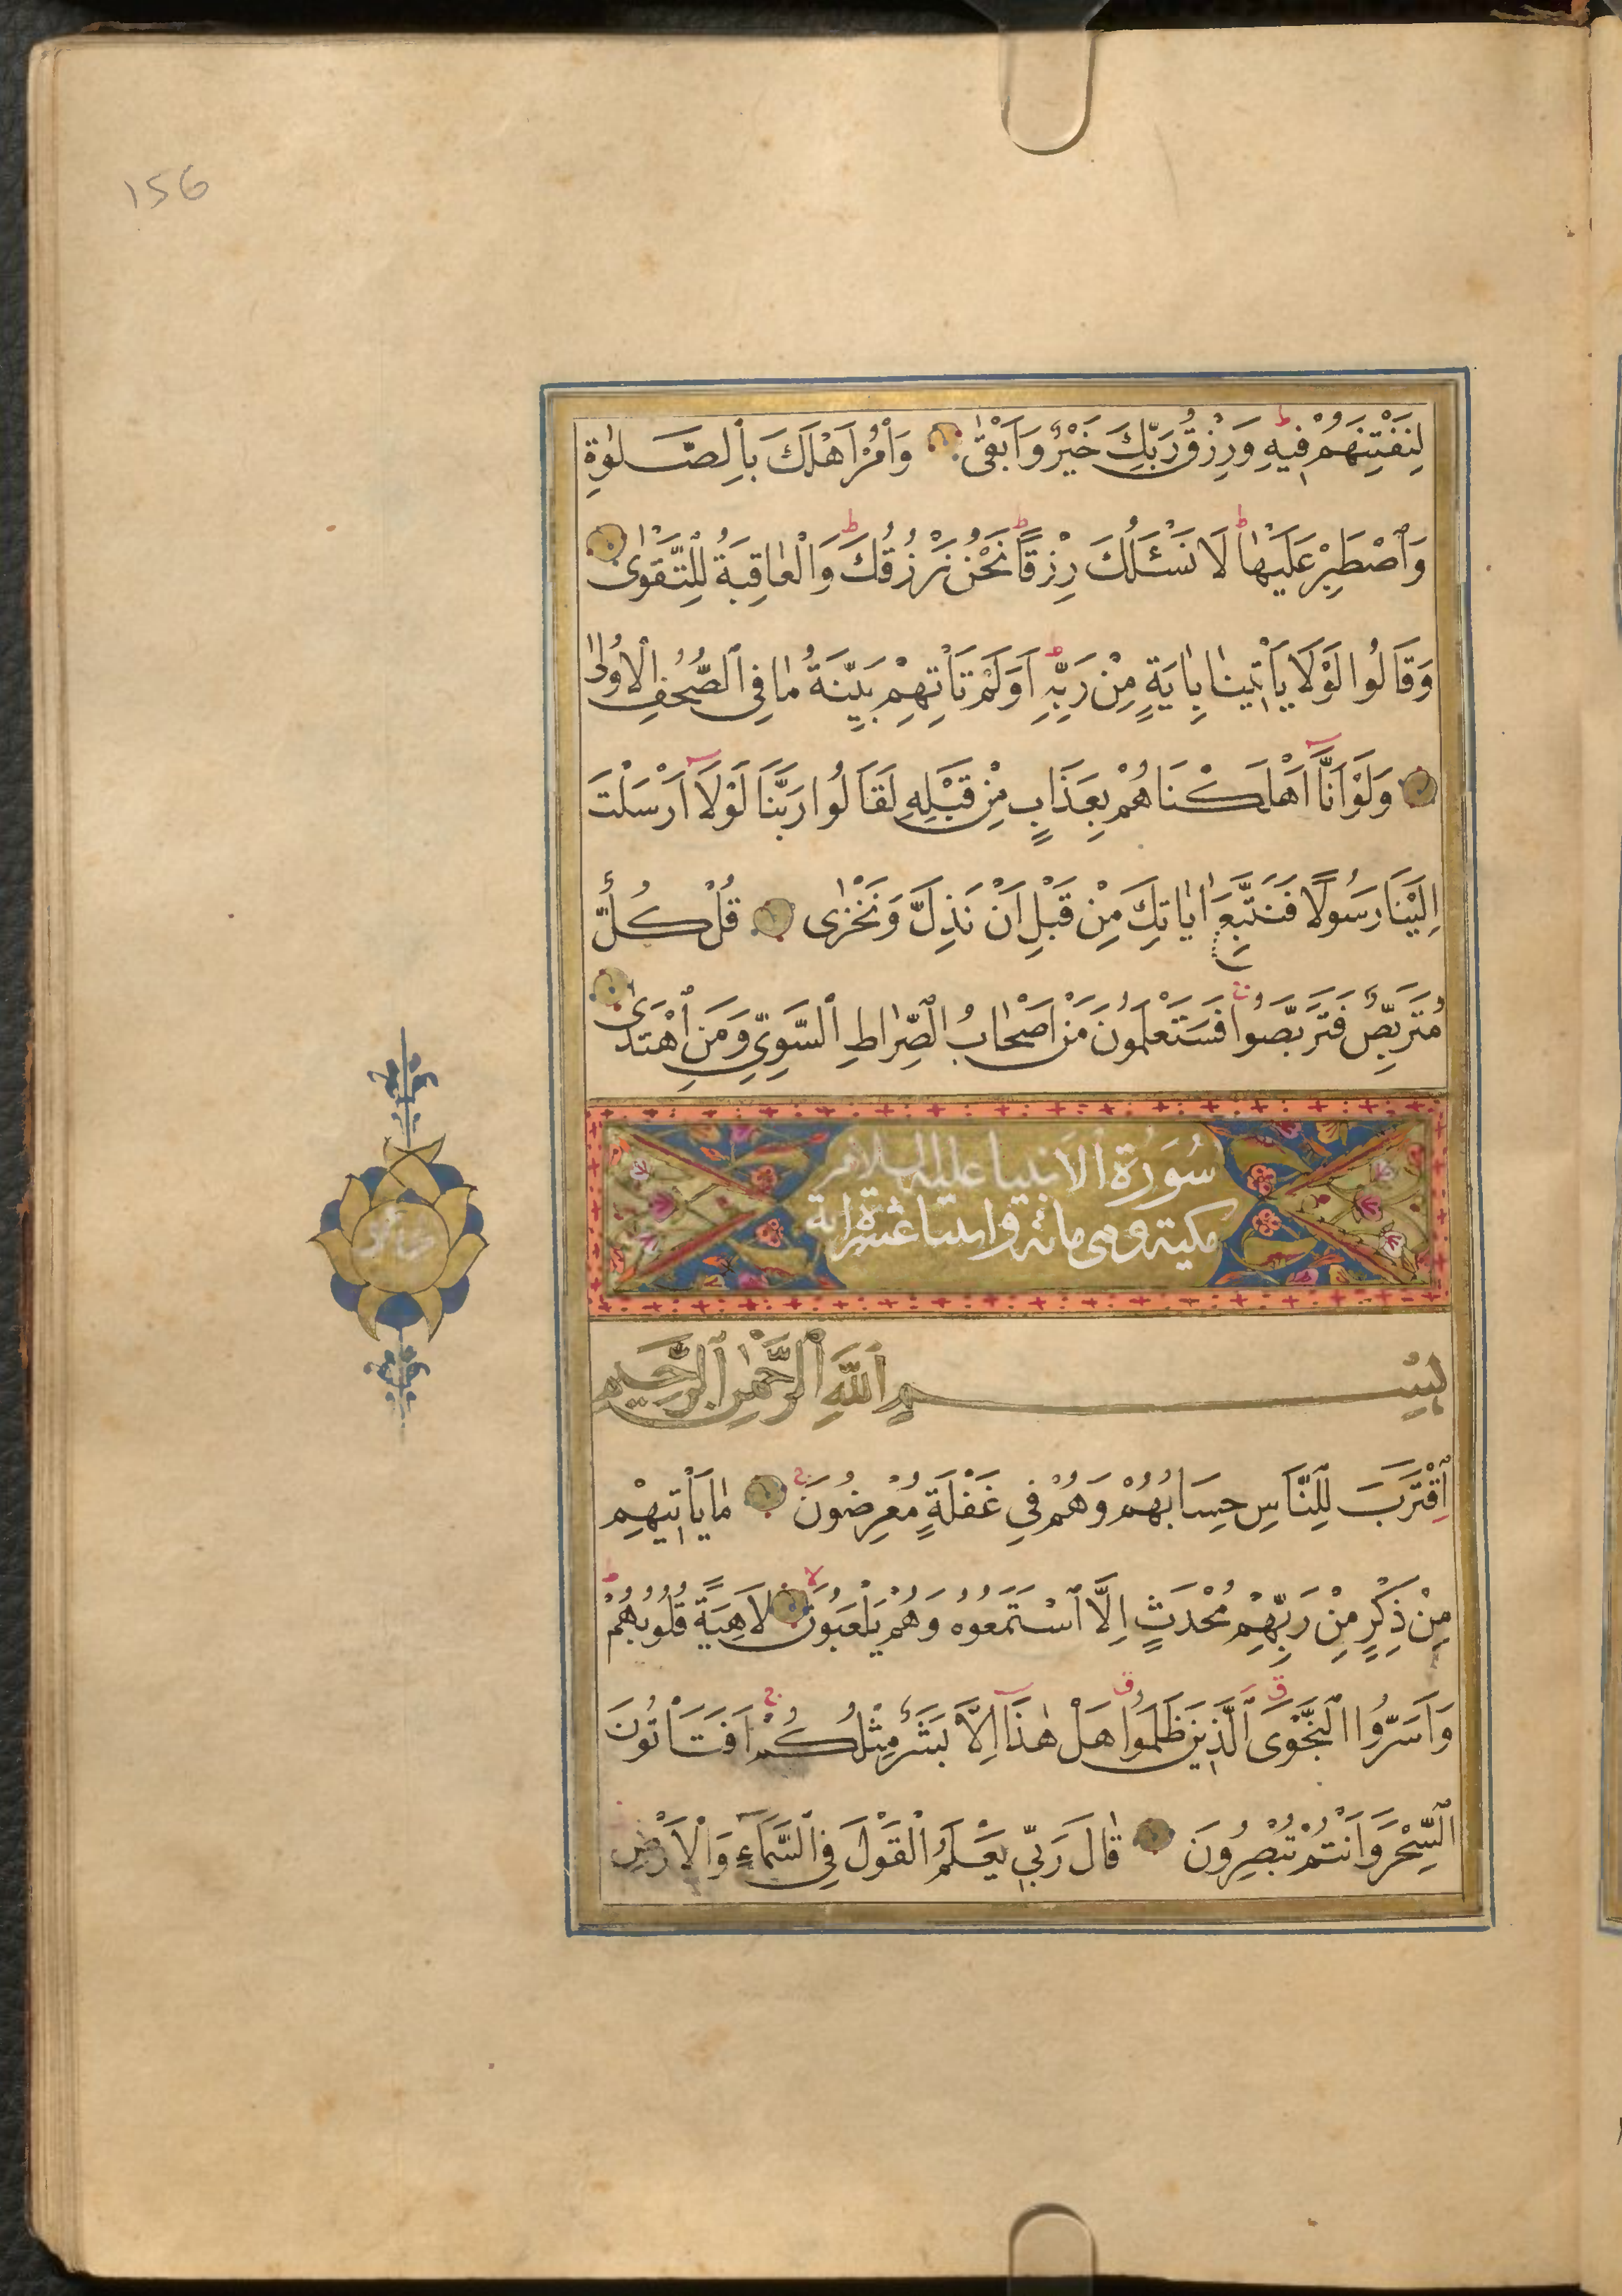 156
لِنَفْتِنَهُمْ فِيهِ وَرِزْقُ رَبِّكَ خَيْرٌ وَاَبْقٰى وَأْمُرْ اَهْلَكَ بِالصَّلٰوةِ
وَاصْطَبِرْ عَلَيْهٰا لَا نَسْئَلُكَ رِزْقًا نَحْنُ نَرْزُقُكَ وَالْعٰاقِبَةُ لِلتَّقْوٰى
وَقَالُوا لَوْلَا يَأْتِينٰا بِاٰيَةٍ مِنْ رَبِّهِ اَوَلَمْ تَأْتِهِمْ بَيِّنَةُ مٰا فِى الصُّحُفِ الْاُولٰى
وَلَوْ اَنَّا اَهْلَكْنَاهُمْ بِعَذَابٍ مِنْ قَبْلِهِ لَقَالُوا رَبَّنَا لَوْلَا اَرْسَلْتَ
اِلَيْنَا رَسُولًا فَنَتَّبِعَ اٰيٰاتِكَ مِنْ قَبْلِ اَنْ نَذِلَّ وَنَخْزٰى قُلْ كُلٌّ
مُتَرَبِّصٌ فَتَرَبَّصُوا فَسَتَعْلَمُونَ مَنْ اَصْحٰابُ الصِّرٰاطِ السَّوِيِّ وَمَنِ اهْتَدٰى
سُورَةُ الْاَنبيا عليه السلام
مكية وهى مائة واثنتا عشرة اية
بِسْمِ اللّٰهِ الرَّحْمٰنِ الرَّحِيمِ
اِقْتَرَبَ لِلنَّاسِ حِسَابُهُمْ وَهُمْ فِى غَفْلَةٍ مُعْرِضُونَ مٰا يَأْتِيهِمْ
مِنْ ذِكْرٍ مِنْ رَبِّهِمْ مُحْدَثٍ اِلَّا اسْتَمَعُوهُ وَهُمْ يَلْعَبُونَ لَاهِيَةً قُلُوبُهُمْ
وَاَسَرُّوا النَّجْوَى الَّذِينَ ظَلَمُوا هَلْ هٰذَا اِلَّا بَشَرٌ مِثْلُكُمْ اَفَتَأْتُونَ
السِّحْرَ وَاَنْتُمْ تُبْصِرُونَ قٰالَ رَبِّى يَعْلَمُ الْقَوْلَ فِى السَّمَآءِ وَالْاَرْضِ